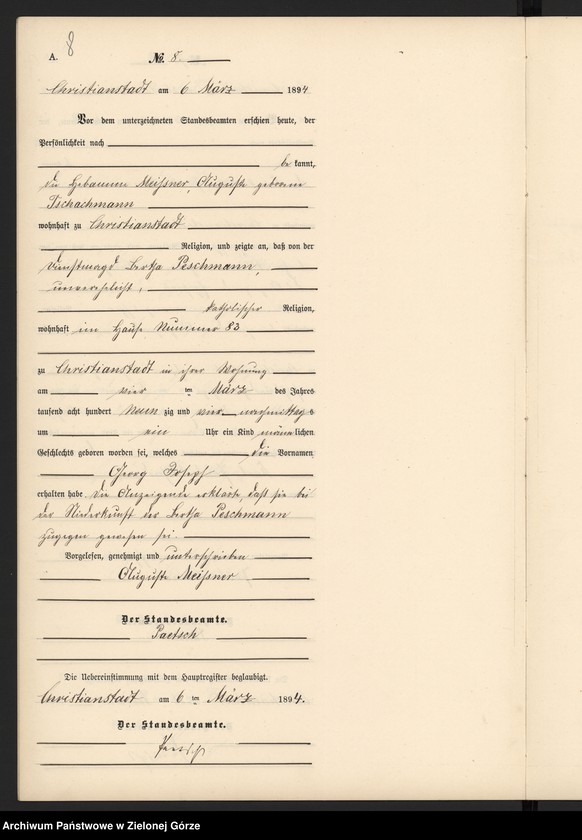 A. 8
No. 8.
Christianstadt am 6 März 1894
Vor dem unterzeichneten Standesbeamten erschien heute, der
Persönlichkeit nach
be kannt,
die Hebamme Meißner, Auguste geborene
Tschachmann
wohnhaft zu Christianstadt
Religion, und zeigte an, daß von der
Dienstmagd Bertha Peschmann,
unverehelicht,
katholischer Religion,
wohnhaft im Hause Nummer 83
zu Christianstadt in ihrer Wohnung
am vier ten März des Jahres
tausend acht hundert neun zig und vier nachmittags
um ein Uhr ein Kind männlichen
Geschlechts geboren worden sei, welches die Vornamen
Georg Joseph
erhalten habe. Die Anzeigende erklärte, daß sie bei
der Niederkunft der Bertha Peschmann
zugegen gewesen sei.
Vorgelesen, genehmigt und unterschrieben
Auguste Meißner
Der Standesbeamte.
Paetsch
Die Uebereinstimmung mit dem Hauptregister beglaubigt.
Christianstadt am 6 ten März 1894.
Der Standesbeamte.
Paetsch
Archiwum Państwowe w Zielonej Górze